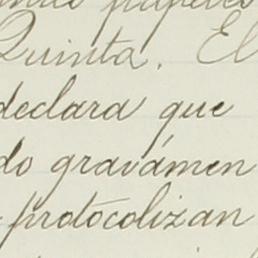 papeles
Quinta. El
declara que
do gravámen
protocolizan